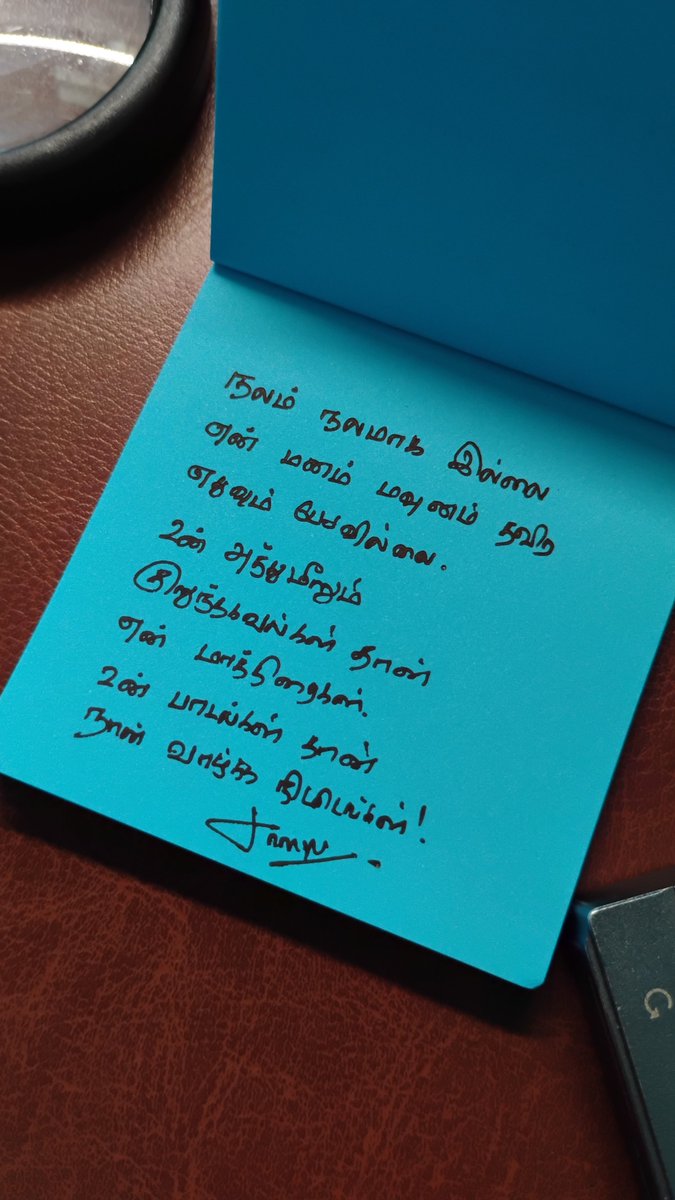 நலம் நலமாக இல்லை
என் மனம் மவுனம் தவிர
எதுவும் பேசவில்லை.
உன் அத்துமீறும்
குறுந்தகவல்கள் தான்
என் மாத்திரைகள்.
உன் பாடல்கள் தான்
நான் வாழ்ந்த நிமிடங்கள்!